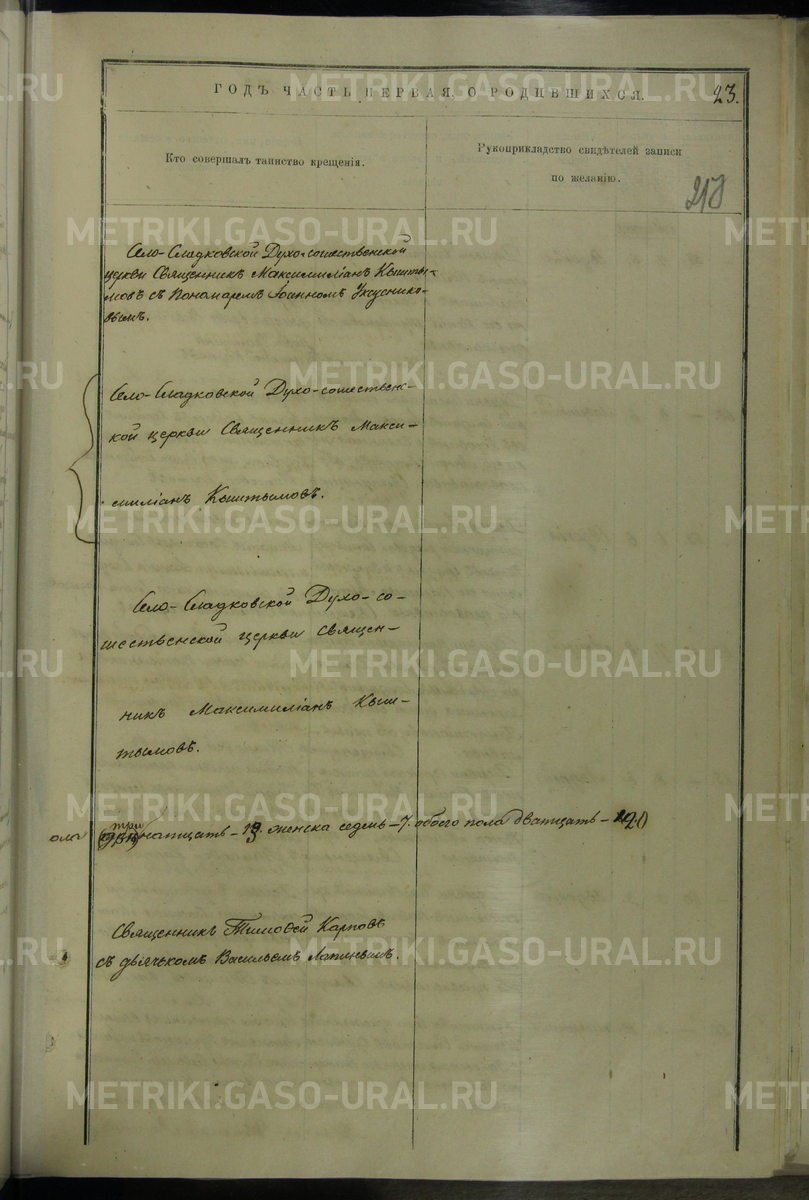 ГОДЪ ЧАСТЬ ПЕРВАЯ. О РОДИВШИХСЯ.
23.
Кто совершалъ таинство крещенія.
Рукоприкладство свидѣтелей записи
по желанію.
Село-Сладковской Духо-сошественской
церкви Священникъ Максимиліанъ Кышты-
мовъ съ Пономаремъ Іоанномъ Уксуснико-
вымъ.
Село-Сладковской Духо-сошественс-
кой церкви Священникъ Макси-
миліанъ Кыштымовъ.
Село-Сладковской Духо-со-
шественской церкви Священ-
никъ Максимиліанъ Кыш-
тымовъ.
три
ола натцать - 13. женска седмь - 7. обоего пола дватцать - 20
Священникъ Тимоѳей Карповъ
съ дьячкомъ Васильемъ
METRIKI.GASO-URAL.RU